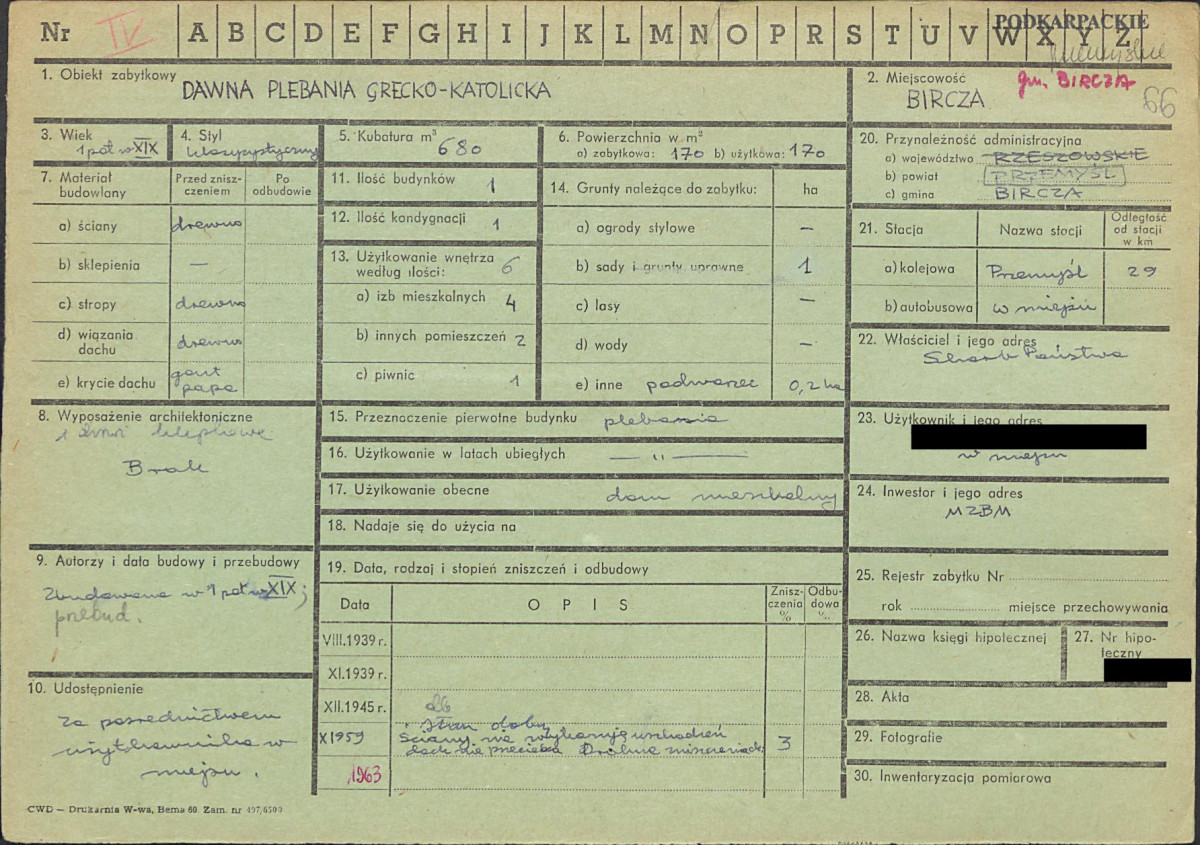 Nr IV A B C D E F G H I J K L M N O P R S T U V W X Y Z
PODKARPACKIE
przemyskie
1. Obiekt zabytkowy
DAWNA PLEBANIA GRECKO-KATOLICKA
2. Miejscowość gm. BIRCZA
BIRCZA 66
3. Wiek
1 poł w XIX
4. Styl
klasycystyczny
5. Kubatura m³ 680
6. Powierzchnia w m²
a) zabytkowa: 170 b) użytkowa: 170
20. Przynależność administracyjna
a) województwo RZESZOWSKIE
b) powiat PRZEMYŚL
c) gmina BIRCZA
7. Materiał budowlany
Przed znisz-
czeniem
Po
odbudowie
a) ściany drewno
b) sklepienia —
c) stropy drewno
d) wiązania
dachu drewno
e) krycie dachu gont
papa
11. Ilość budynków 1
12. Ilość kondygnacji 1
13. Użytkowanie wnętrza
według ilości: 6
a) izb mieszkalnych 4
b) innych pomieszczeń 2
c) piwnic 1
14. Grunty należące do zabytku: ha
a) ogrody stylowe —
b) sady i grunty uprawne 1
c) lasy —
d) wody —
e) inne podwórzec 0,2 ha
21. Stacja Nazwa stacji
Odległość
od stacji
w km
a) kolejowa Przemyśl 29
b) autobusowa w miejscu
22. Właściciel i jego adres
Skarb Państwa
8. Wyposażenie architektoniczne
Brak
15. Przeznaczenie pierwotne budynku plebania
16. Użytkowanie w latach ubiegłych — „ —
17. Użytkowanie obecne dom mieszkalny
18. Nadaje się do użycia na
23. Użytkownik i jego adres
w miejscu
24. Inwestor i jego adres
MZBM
9. Autorzy i data budowy i przebudowy
Zbudowana w 1 poł w XIX;
przebud.
19. Data, rodzaj i stopień zniszczeń i odbudowy
Data OPIS
Znisz-
czenia
%
Odbu-
dowa
%
VIII.1939 r.
XI.1939 r.
XII.1945 r.
X 1959 Stan dobry
Ściany nie wykazują uszkodzeń
dach nie przecieka 3
1963
25. Rejestr zabytku Nr
rok miejsce przechowywania
26. Nazwa księgi hipotecznej
27. Nr hipo-
teczny
28. Akta
29. Fotografie
30. Inwentaryzacja pomiarowa
10. Udostępnienie
Za pośrednictwem
użytkownika w
miejscu.
CWD — Drukarnia W-wa, Bema 60. Zam. nr 497/6500